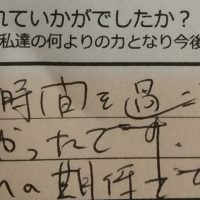 れていかがでしたか?
私達の何よりの力となり今後
時間を過ご
かったです.
の期待でで